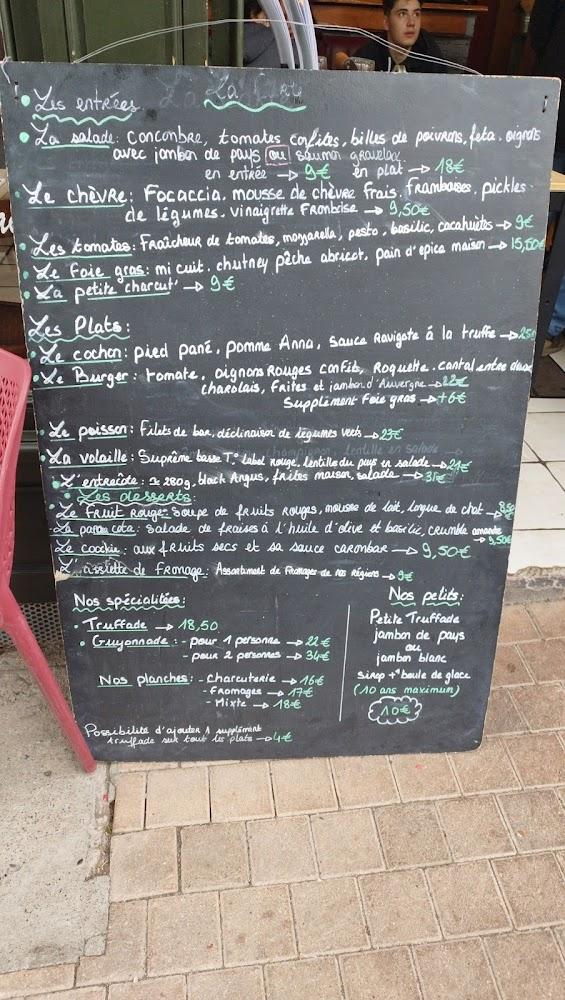 La Carte
Les entrées
La salade: concombre, tomates confites, billes de poivrons, feta, oignons
avec jambon de pays ou saumon gravelax
en entrée → 9€ en plat → 18€
Le chèvre: Focaccia, mousse de chèvre frais, framboises, pickles
de légumes, vinaigrette framboise → 9,50€
Les tomates: Fraîcheur de tomates, mozzarella, pesto, basilic, cacahuètes → 9€
Le foie gras: mi cuit, chutney pêche abricot, pain d'epice maison → 15,50€
La petite charcut' → 9€
Les Plats:
Le cochon: pied pané, pomme Anna, sauce Ravigote à la truffe → 25€
Le Burger: tomate, oignons rouges confits, Roquette, cantal entre deux
charolais, frites et jambon d'Auvergne → 22€
Supplément Foie gras → +6€
Le poisson: Filets de bar, déclinaison de légumes verts → 23€
La volaille: Suprême basse T.° label rouge, lentilles du pays en salade → 21€
L'entrecôte: ≃ 280g, black Angus, frites maison, salade → 31€
Les desserts:
Le Fruit Rouge: Soupe de fruits rouges, mousse de lait, langue de chat
La panna cota: Salade de fraises à l'huile d'olive et basilic, crumble amande → 9,50€
Le cookie: aux fruits secs et sa sauce carambar → 9,50€
L'assiette de fromage: Assortiment de fromages de nos régions → 9€
Nos spécialitées:
Truffade → 18,50
Guyonnade: - pour 1 personne → 22€
- pour 2 personnes → 34€
Nos planches: - Charcuterie → 16€
- Fromages → 17€
- Mixte → 18€
Possibilité d'ajouter 1 supplément
truffade sur tout les plats → 4€
Nos petits:
Petite Truffade
jambon de pays
ou
jambon blanc
sirop + 1 boule de glace
(10 ans maximum)
10€